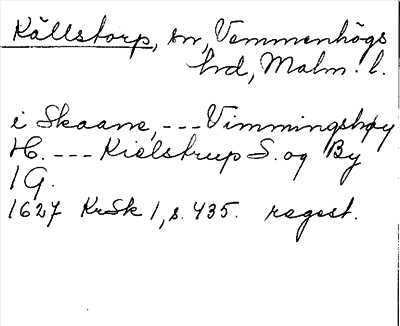 Källstorp, sn, Vemmenhögs
hd, Malm. l.
i Skaane, --- Vimmingshøy
H. --- Kielstrup S. og By
1 G.
1627 KrSk 1, s. 435. regest.